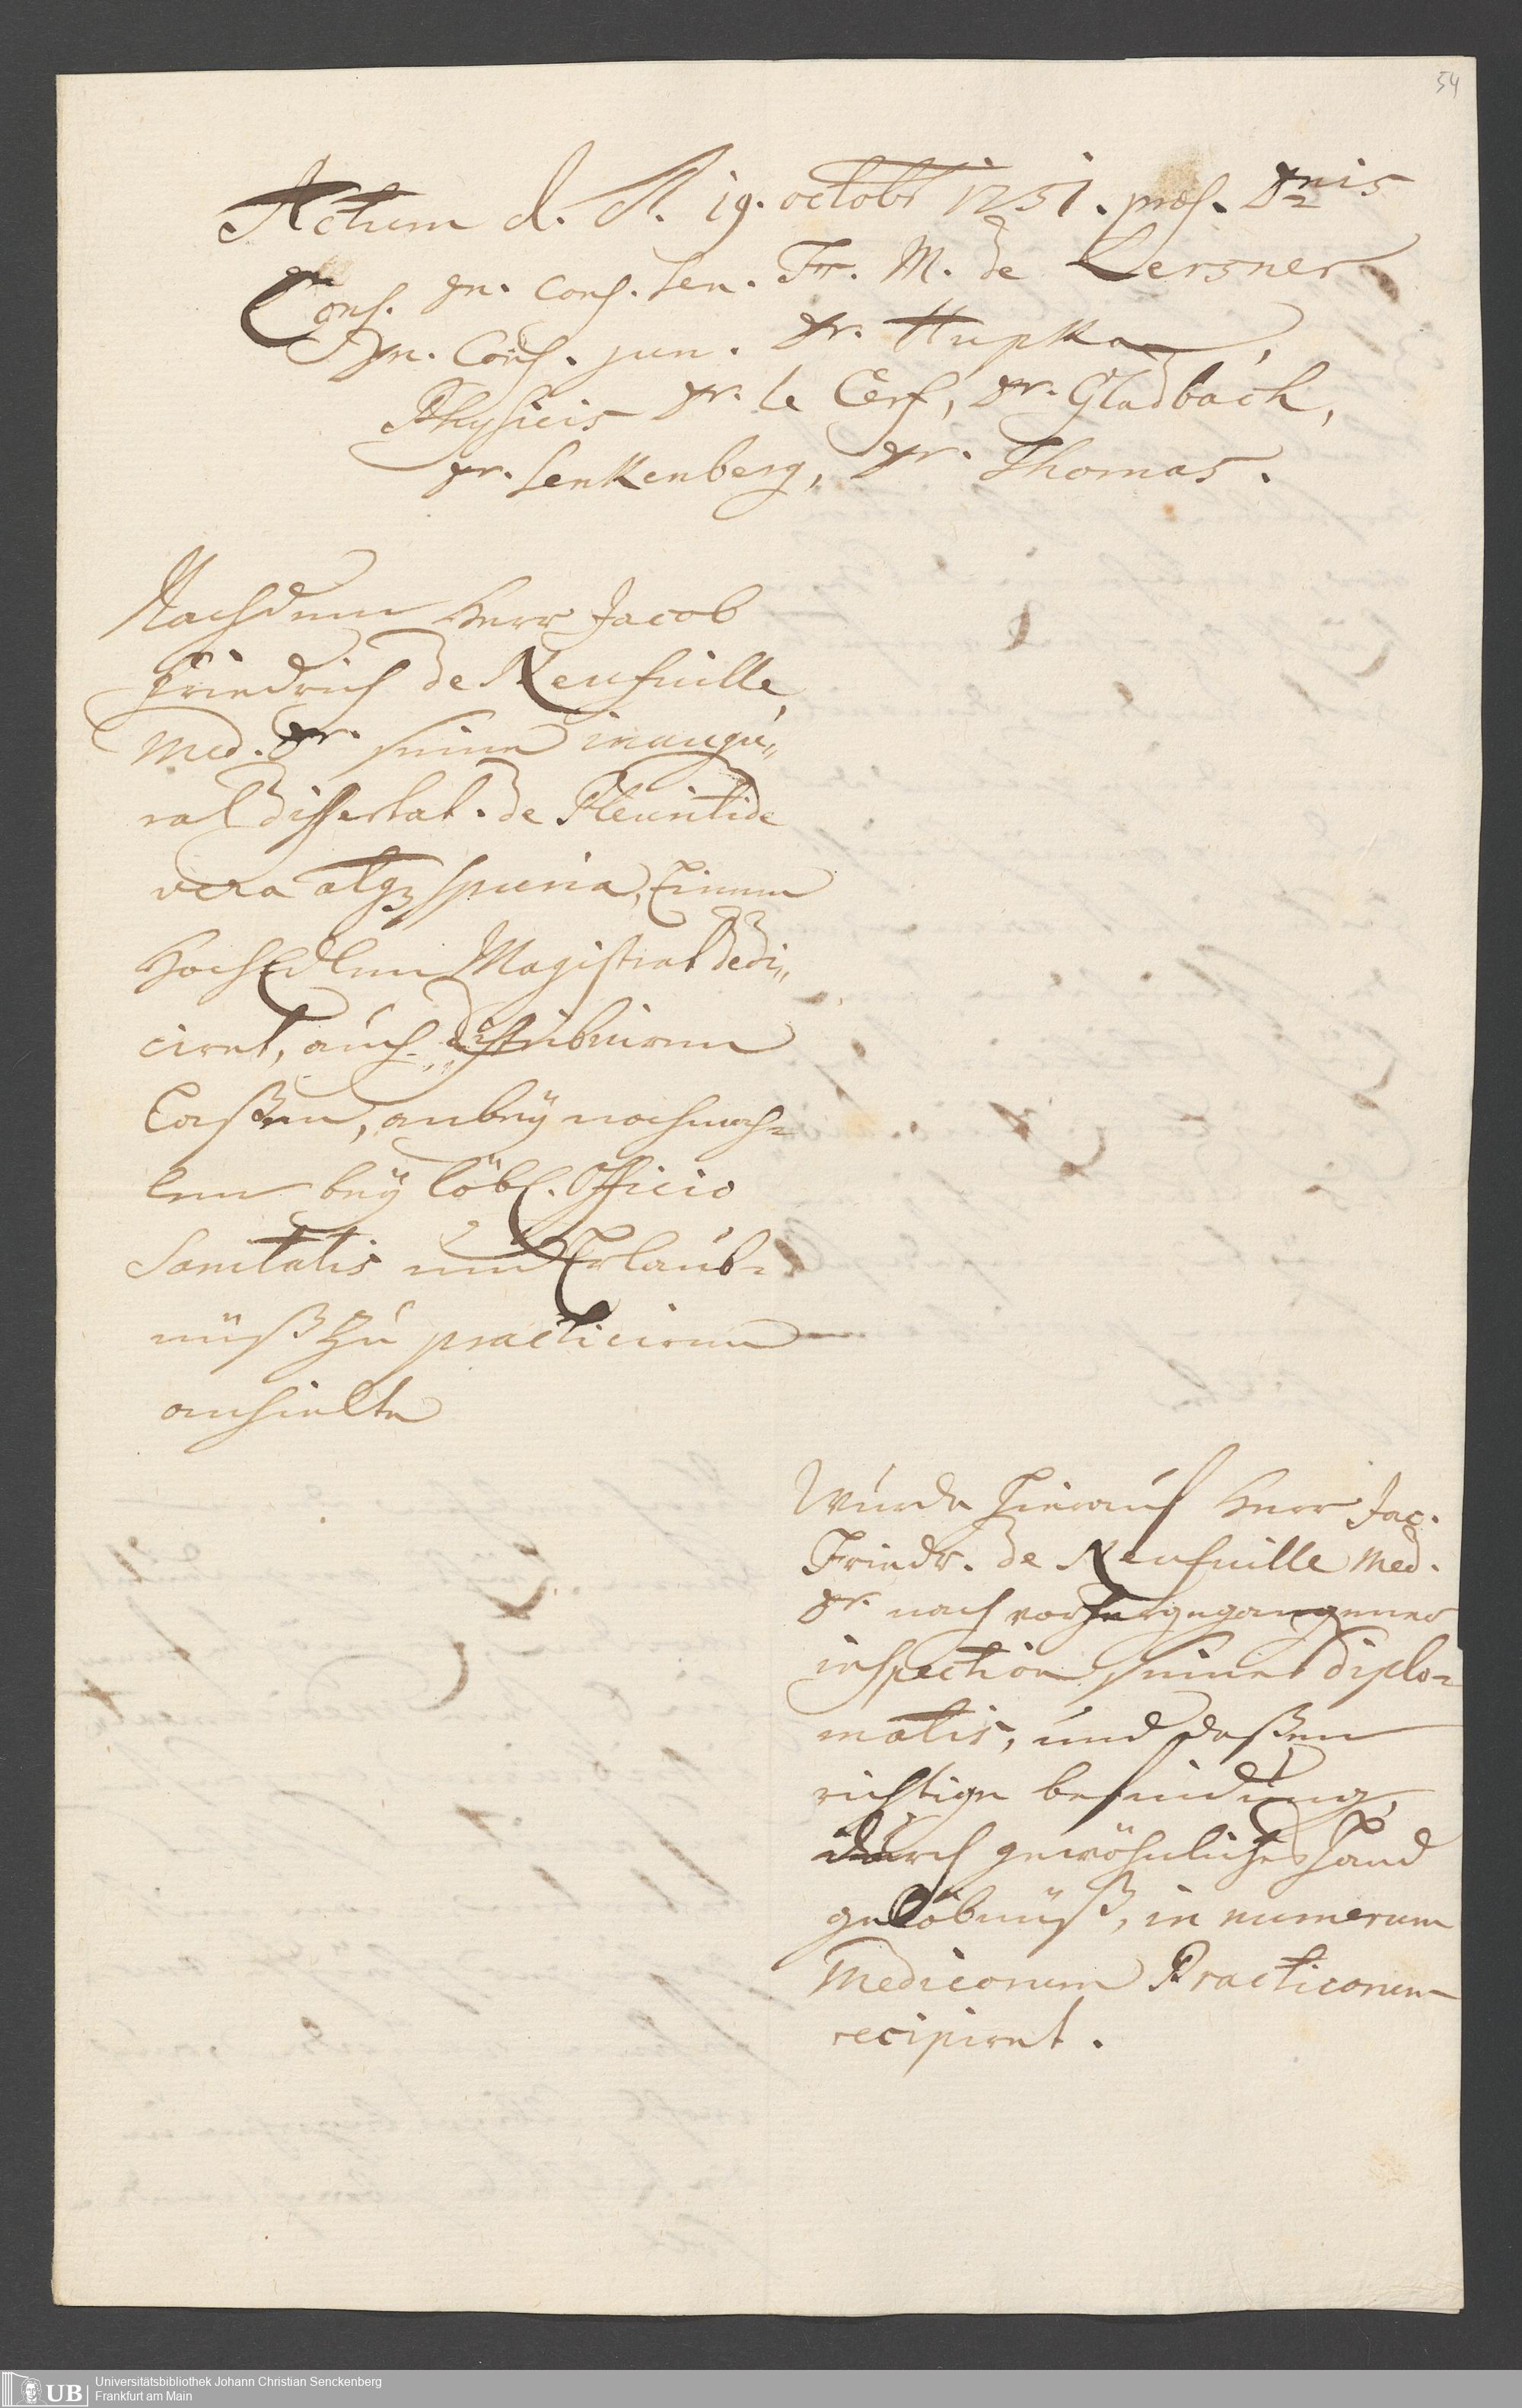 54
Actum d. M. 19. octobr 1751. præs. Dnis
Cons. Hn. Cons. Sen. Fr. M. de Lersner
Hn. Cons. jun. Dr. Hupka,
Physicis Dr. le Cerf, Dr. Gladbach,
Dr. Senkenberg, Dr. Thomas.
Nachdem Herr Jacob
Friedrich de Neufuille,
Med. Dr. seine inaugu„
ral dissertat. de Pleuritide
vera atq3 spuria, Einem
HochEdlen Magistrat dedi„
ciret, auch distribuiren
laßen, anbey nochmah=
len bey löbl. Officio
Sanitatis um Erlaub=
nüß zu practiciren
anhielte
Wurde hierauf Herr Jac.
Friedr. de Neufuille Med.
Dr. nach vorhergegangener
inspection seines diplo=
matis, und deßen
richtige befindung,
durch gewöhnliches Hand
gelöbnüß, in numerum
Medicorum Practicorum
recipiret.
UB
Universitätsbibliothek Johann Christian Senckenberg
Frankfurt am Main